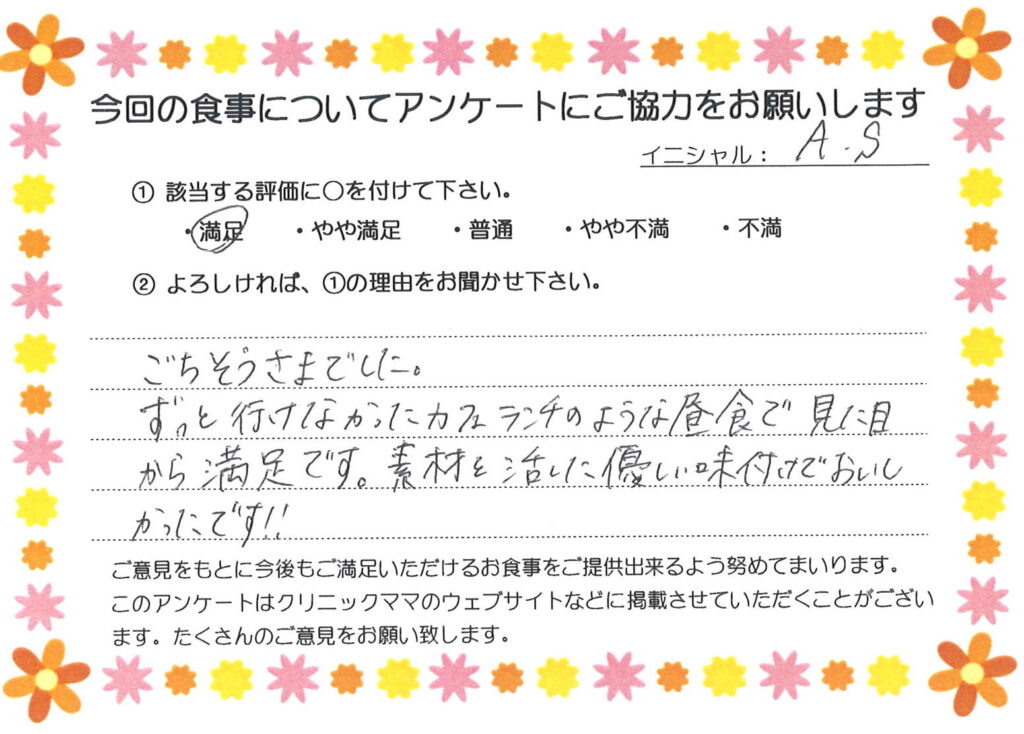 今回の食事についてアンケートにご協力をお願いします
イニシャル： A.S
① 該当する評価に○を付けて下さい。
・満足 ・やや満足 ・普通 ・やや不満 ・不満
② よろしければ、①の理由をお聞かせ下さい。
ごちそうさまでした。
ずっと行けなかったカフェランチのような昼食で見た目
から満足です。素材を活した優しい味付けでおいし
かったです!!
ご意見をもとに今後もご満足いただけるお食事をご提供出来るよう努めてまいります。
このアンケートはクリニックママのウェブサイトなどに掲載させていただくことがござい
ます。たくさんのご意見をお願い致します。